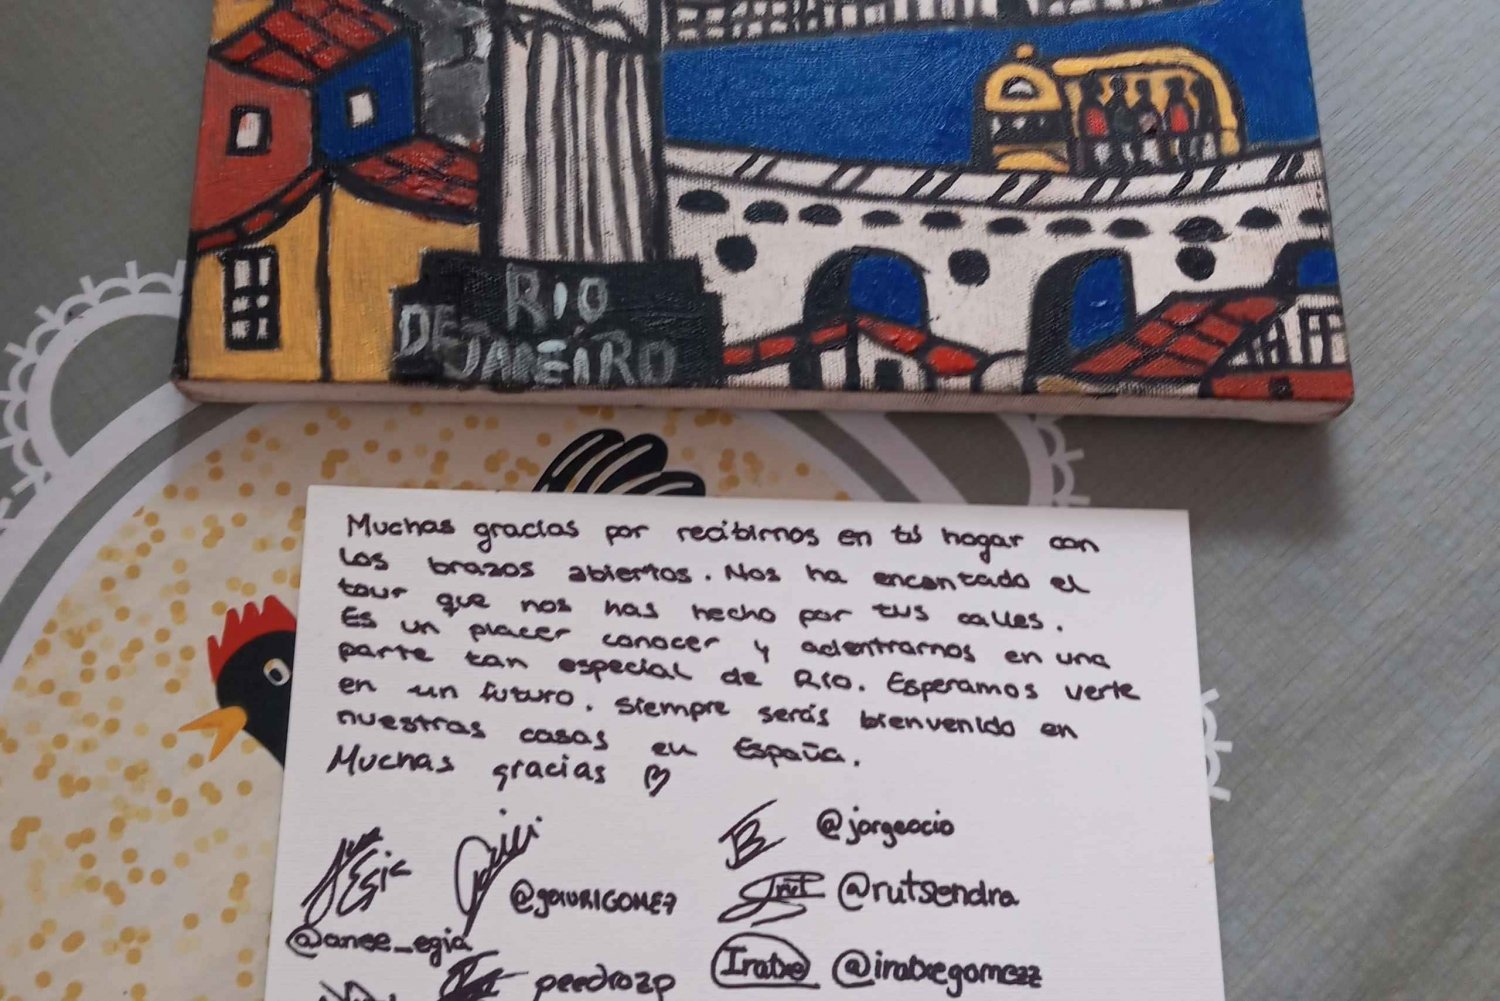 RIO
DE JANEIRO
Muchas gracias por recibirnos en tú hogar con
los brazos abiertos. Nos ha encantado el
tour que nos has hecho por tus calles.
Es un placer conocer y adentrarnos en una
parte tan especial de Río. Esperamos verte
en un futuro. Siempre serás bienvenido en
nuestras casas en España.
Muchas gracias
@jorgeocio
@rutsendra
@anee_egia
peedrozp
Iratxe @iratxegomezz